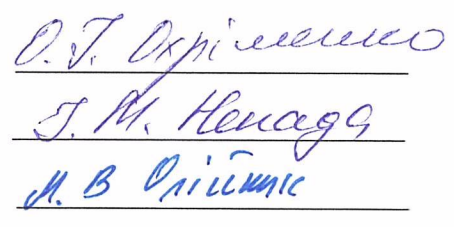 О. Г. Охріменко
Г. М. Ненада
Л. В Олійник